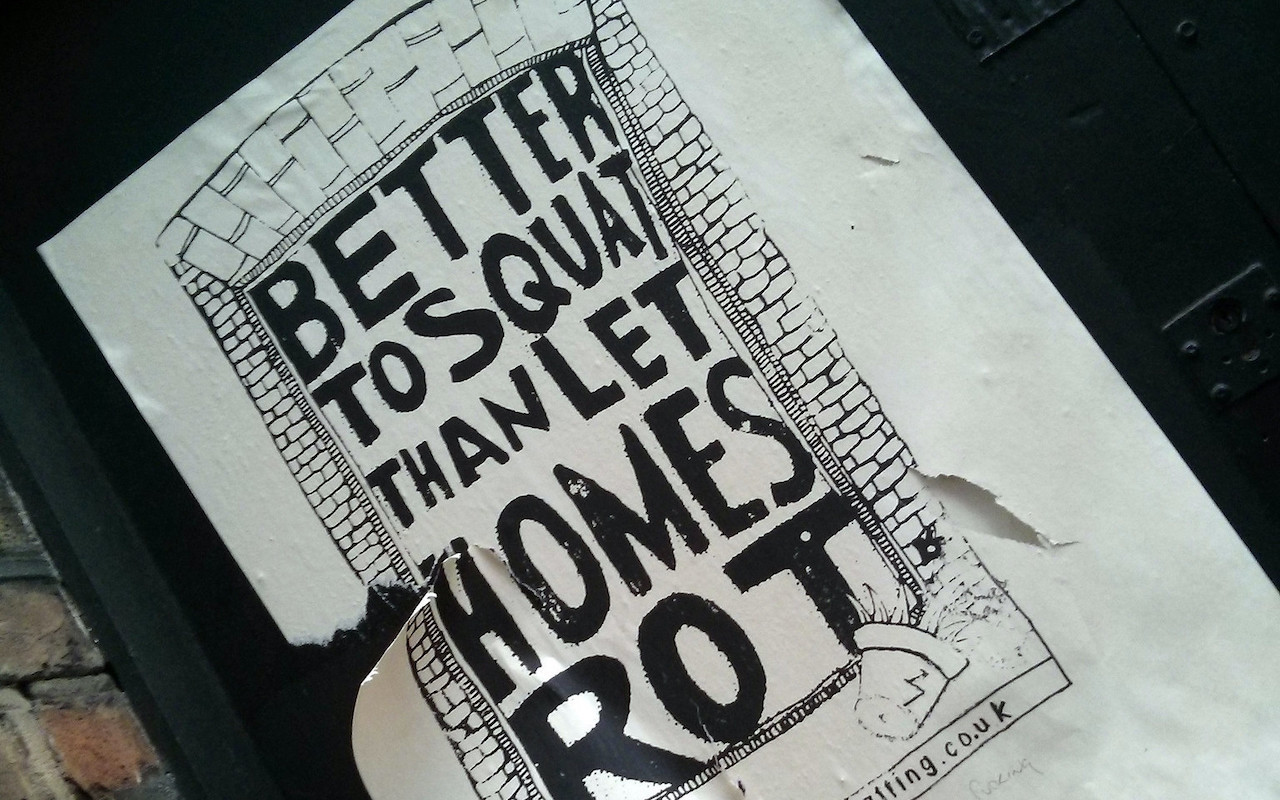 BETTER
TO SQUAT
THAN LET
HOMES
ROT
.co.uk